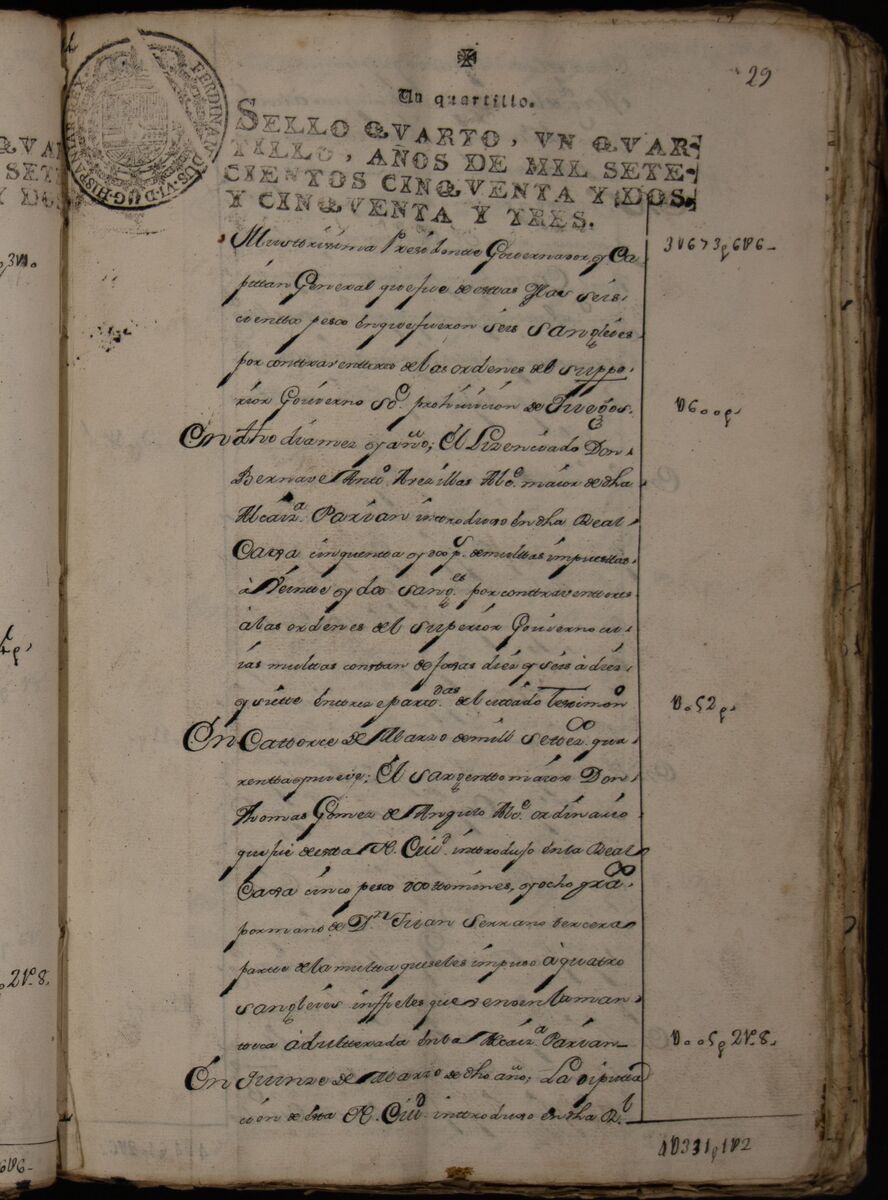 29
Un quartillo.
SELLO QVARTO, VN QVAR-
TILLO, AÑOS DE MIL SETE-
CIENTOS CINQVENTA Y DOS,
Y CINQVENTA Y TRES.
FERDINANDUS·VI·D·G·HISPANIAR·REX·
Illustrissima Presidente Governador, y Ca
pitan General que fue de estas Yslas seis
cientos pesos en que fueron seis sangleyes
por contraventores de las ordenes del suppe
rior Govierno Sre. prohivicion de Juegos.
3U673p6U6-
U600p.
En dho dia mez y año; El Lizenciado Don
Bernave Anto. Arezillas Alce. maior de dha
Alcaiza. Parian introduxo en dha Real
Caxa cinquenta y dos ps. de multas impuestas
à veinte y dos sangs. por contraventores
à las ordenes del Superior Govierno cu
ias multas constan de foxas diez y seis à diez
y siete en treze partidas del citado testimono
U.52p.
En Catorce de Marzo de mill settezs. qua
renta y nueve; El sargento mâior Don
Thomas Gomez de Angulo Alce. ordinario
que fue de esta N. Ciud. introdujo en la Real
Caxa cinco pesos dos tomines, y ocho gras.
por mano de Dn. Juan Serrano tercera
parte de la multa que se les impuso à quatro
sangleyes infieles que venden la man
teca adulterada en la Alcaiza. Parian
U..05p2r.8.
En quinze de Marzo de dho año; La diputta
cion de esta N. Ciud. introduxo en dha Rl
4U331p1U2
p3U.
p2r.8.
6U6-